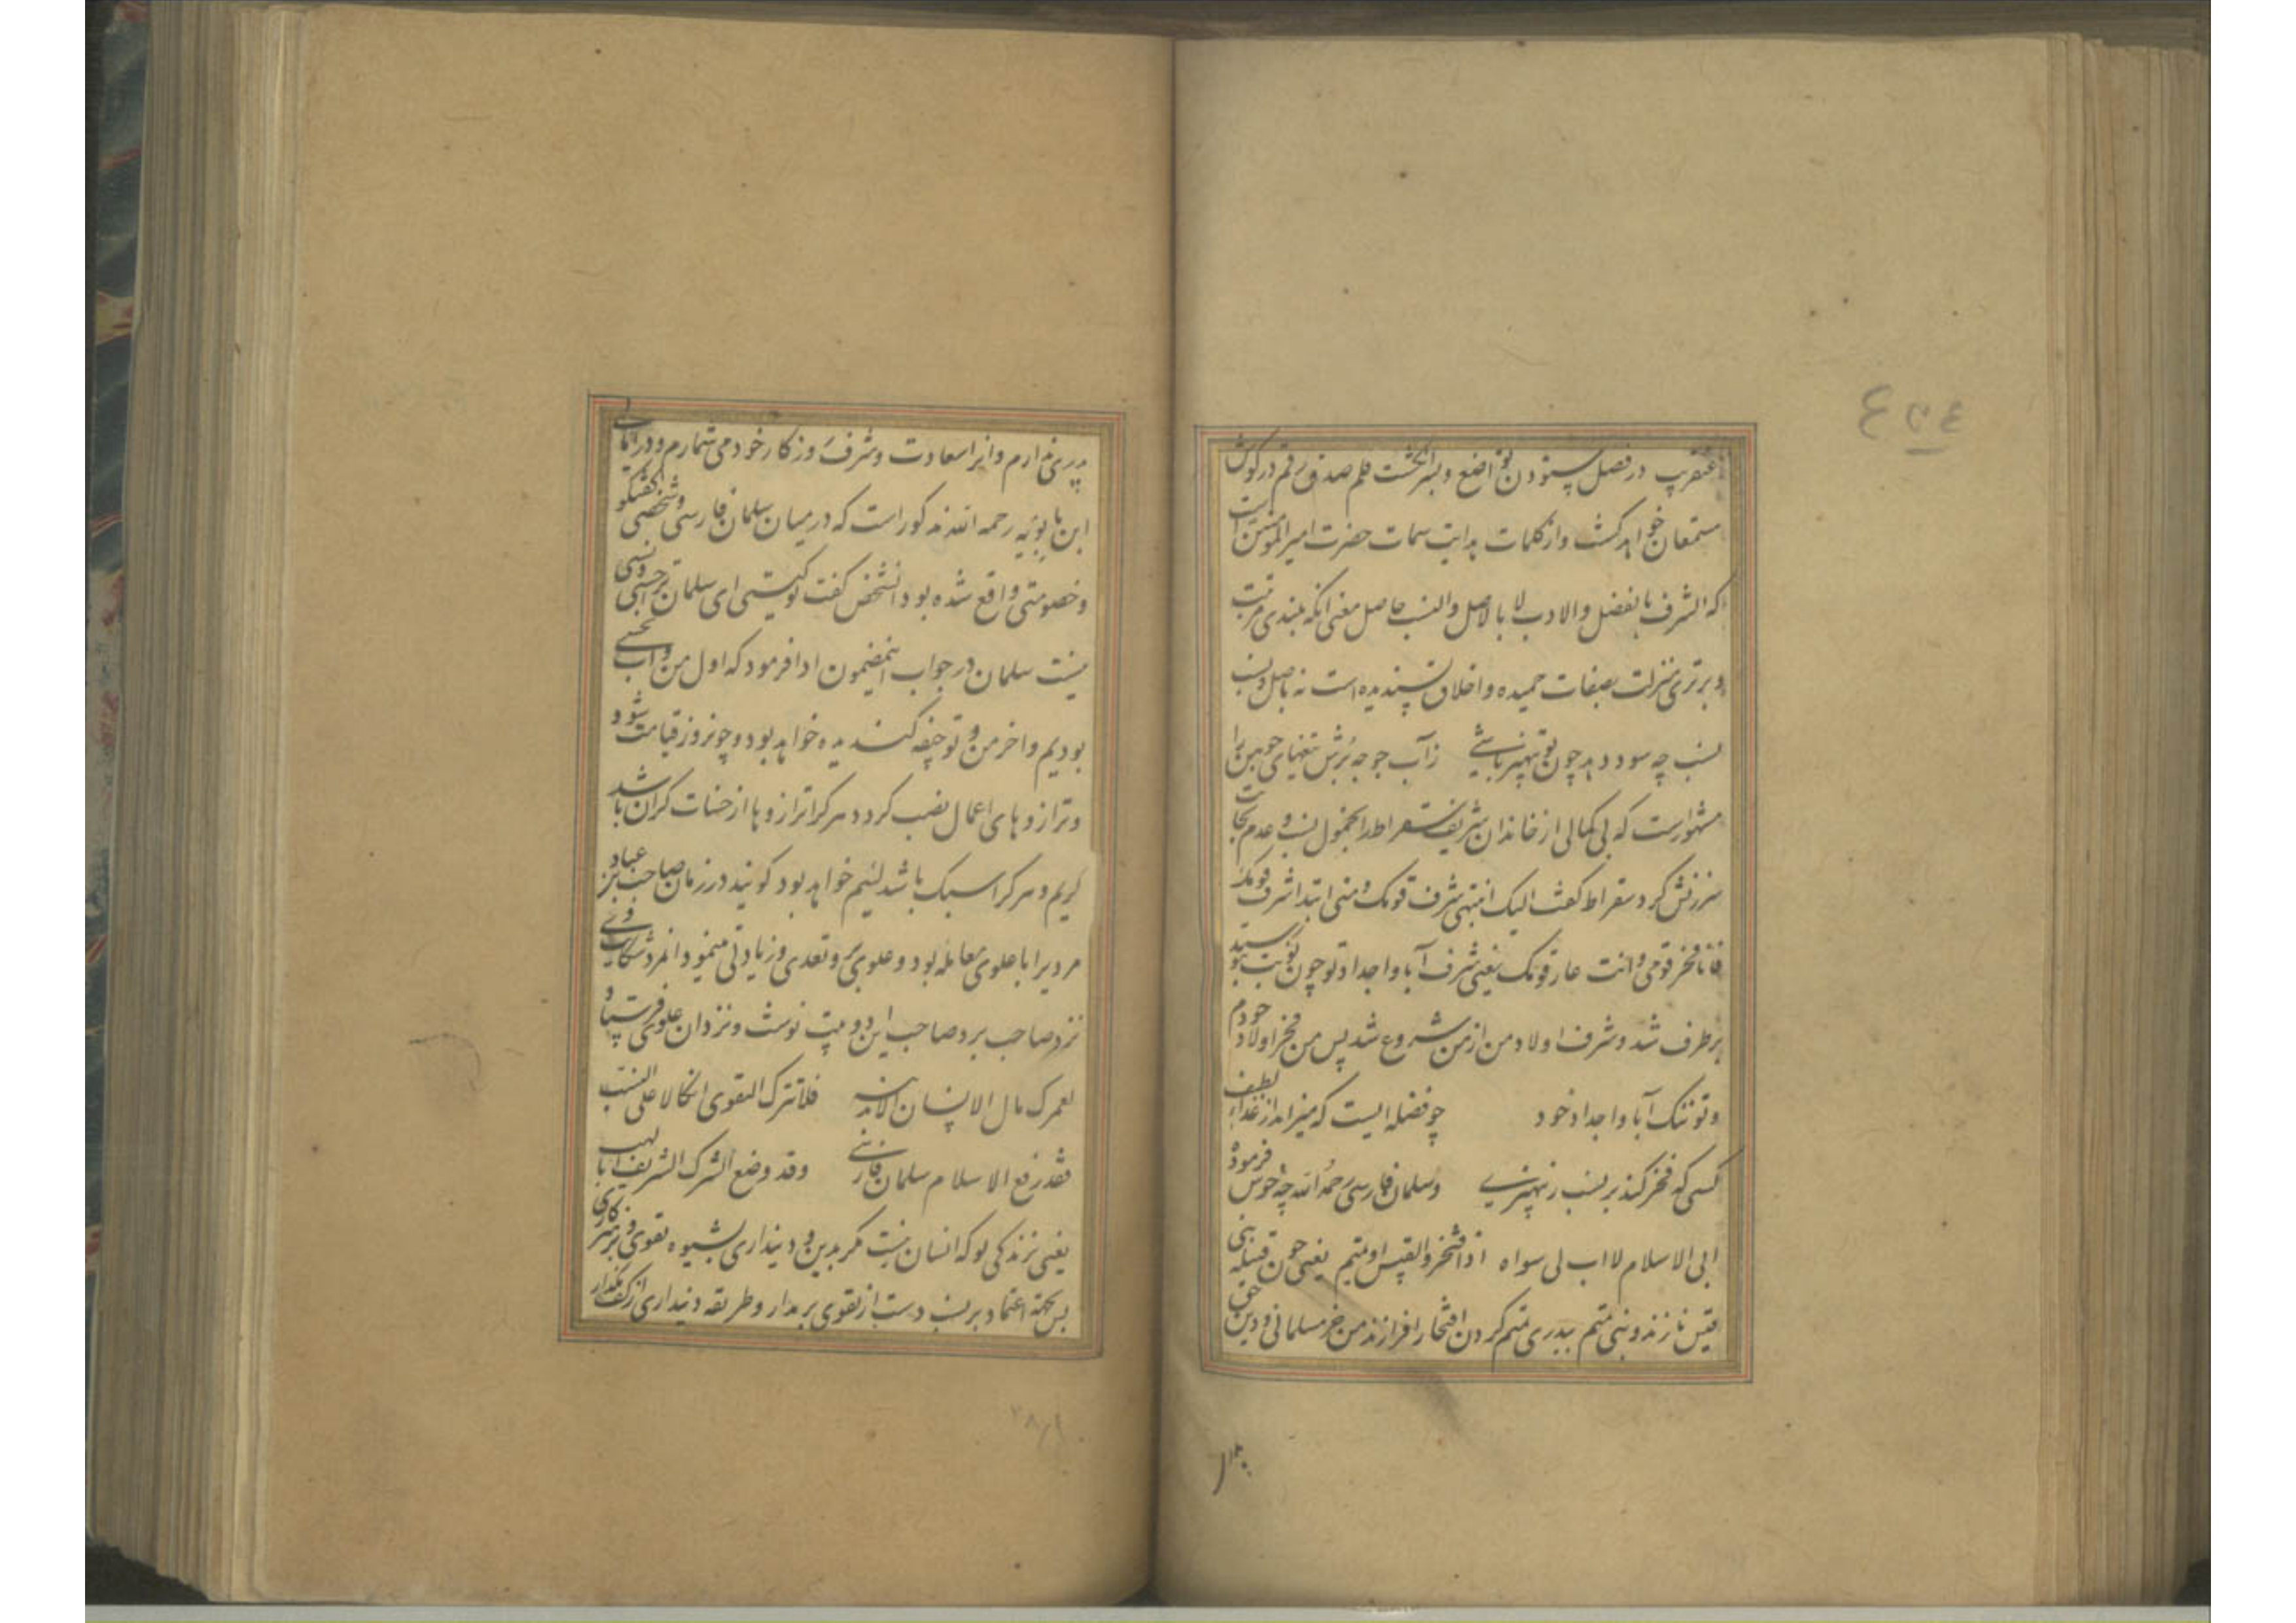 ٤٣٤
عنقریب در فصل ستودن تواضع و بسر انگشت قلم صدق رقم در گوش
مستمعان خواهد گشت و از کلمات هدایت سمات حضرت امیر المومنین است
که الشرف بالفضل والادب لا بالاصل والنسب حاصل معنی انکه بلندی مرتبت
و برتری منزلت بصفات حمیده و اخلاق پسندیده است نه باصل و نسب
نسب چه سود دهد چون تو بی‌هنر باشی ز آب جو چه برش تیغهای چوبین را
مشهور است که بی کمالی از خاندان شریف سقراط را بخمول نسب و عدم نجابت
سرزنش کرد سقراط گفت الیک انتهی شرف قومک و منی ابتدا شرف قومی
فانا فخر قومی و انت عار قومک یعنی شرف آبا و اجداد تو چون نوبت بتو رسید
برطرف شد و شرف اولاد من از من شروع شد پس من فخر اولاد خودم
و تو ننگ آبا و اجداد خود چو فضله ایست که میزاید از غذاء لطیف
کسی که فخر کند بر نسب ز بی‌هنری و سلمان فارسی رحمه الله چه خوش فرموده
ابی الاسلام لا اب لی سواه اذا افتخروا بقیس او تمیم یعنی چون قبیله بنی
قیس نازند و بنی تمیم بپدری تمیم گردن افتخار افرازند من جز مسلمانی و دین حق
پدری ندارم و انرا سعادت و شرف روزگار خود می شمارم و در امالی
ابن بابویه رحمه الله مذکور است که در میان سلمان فارسی و شخصی گفتگو
و خصومتی واقع شده بود انشخص گفت تو کیستی ای سلمان ترا حسبی و نسبی
نیست سلمان در جواب اینمضمون ادا فرمود که اول من و تو آب نجسی
بودیم و اخر من و تو جیفه گندیده خواهد بود و چو نروز قیامت شود
و ترازوهای اعمال نصب کردد هر کرا ترازوها از حسنات گران باشد
کریم و هر کرا سبک باشد لئیم خواهد بود گویند در زمان صاحب بن عباد
مردیرا با علوی معامله بود و علوی بر وی تعدی و زیادتی مینمود انمرد شکایت
نزد صاحب برد صاحب این دو بیت نوشت و نزد ان علوی فرستاد
لعمرک ما الانسان الا بدینه فلا تترک التقوی اتکالا علی النسب
فقد رفع الاسلام سلمان فارس وقد وضع الشرک الشریف ابا لهب
یعنی بزندگی تو که انسان نیست مگر بدین و دینداری بشیوه تقوی و پرهیزکاری
پس بجهة اعتماد بر نسب دست از تقوی برمدار و طریقه دینداری از کف مگذار